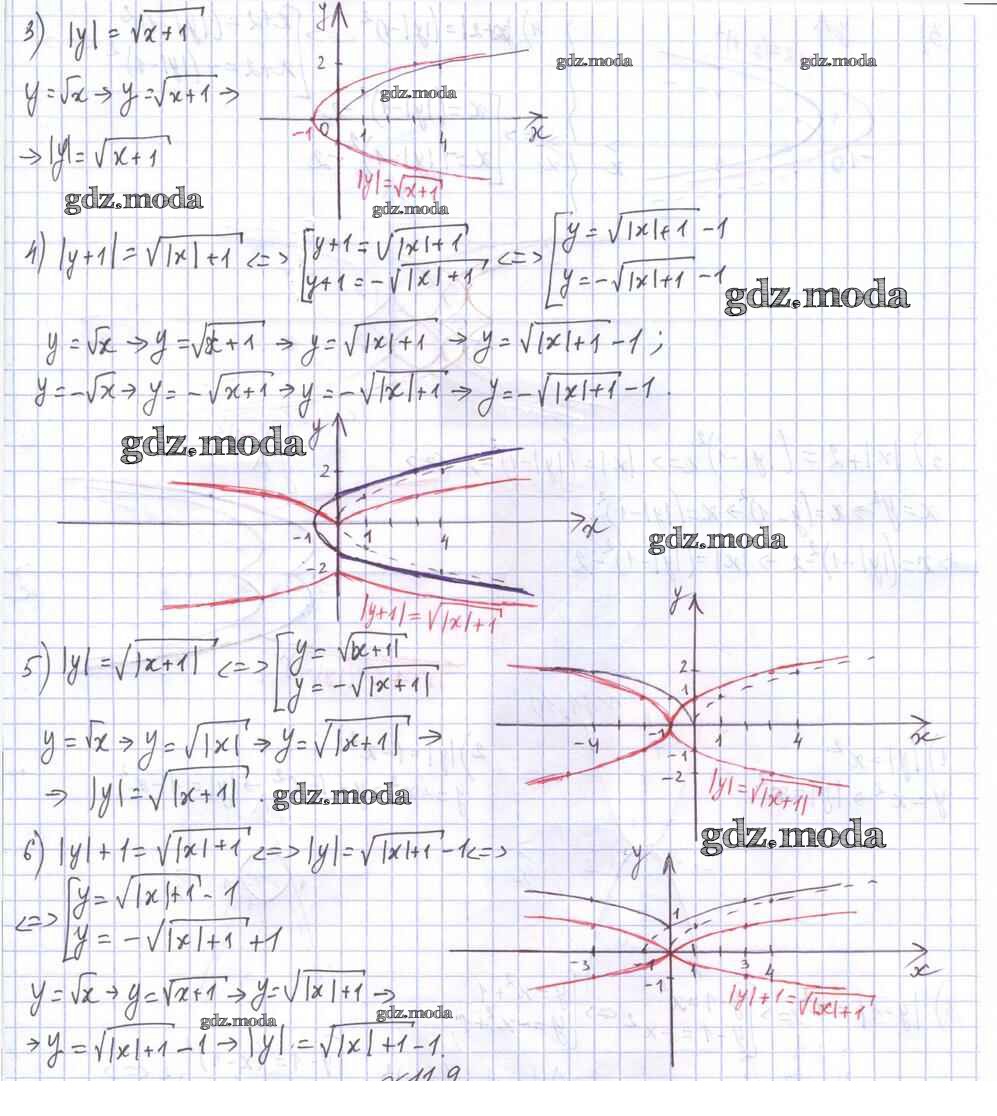 3) |y| = √(x+1)
y = √x → y = √(x+1) →
→ |y| = √(x+1)
gdz.moda
y
2
gdz.moda
gdz.moda
gdz.moda
-1 0 1 4 x
|y| = √(x+1)
gdz.moda
4) |y+1| = √(|x|+1) <=> [ y+1 = √(|x|+1) <=> [ y = √(|x|+1) - 1
y+1 = -√(|x|+1) y = -√(|x|+1) - 1
gdz.moda
y = √x → y = √(x+1) → y = √(|x|+1) → y = √(|x|+1) - 1 ;
y = -√x → y = -√(x+1) → y = -√(|x|+1) → y = -√(|x|+1) - 1 .
gdz.moda
y
2
-1 1 4 x
-2
|y+1| = √(|x|+1)
gdz.moda
5) |y| = √|x+1| <=> [ y = √|x+1|
y = -√|x+1|
y = √x → y = √|x| → y = √|x+1| →
→ |y| = √|x+1| .
gdz.moda
y
2
1
-4 -1 1 4 x
-1
-2
|y| = √|x+1|
gdz.moda
6) |y| + 1 = √(|x|+1) <=> |y| = √(|x|+1) - 1 <=>
<=> [ y = √(|x|+1) - 1
y = -√(|x|+1) + 1
y = √x → y = √(x+1) → y = √(|x|+1) →
gdz.moda
gdz.moda
→ y = √(|x|+1) - 1 → |y| = √(|x|+1) - 1.
y
1
-3 -1 1 3 4 x
-1
|y| + 1 = √(|x|+1)